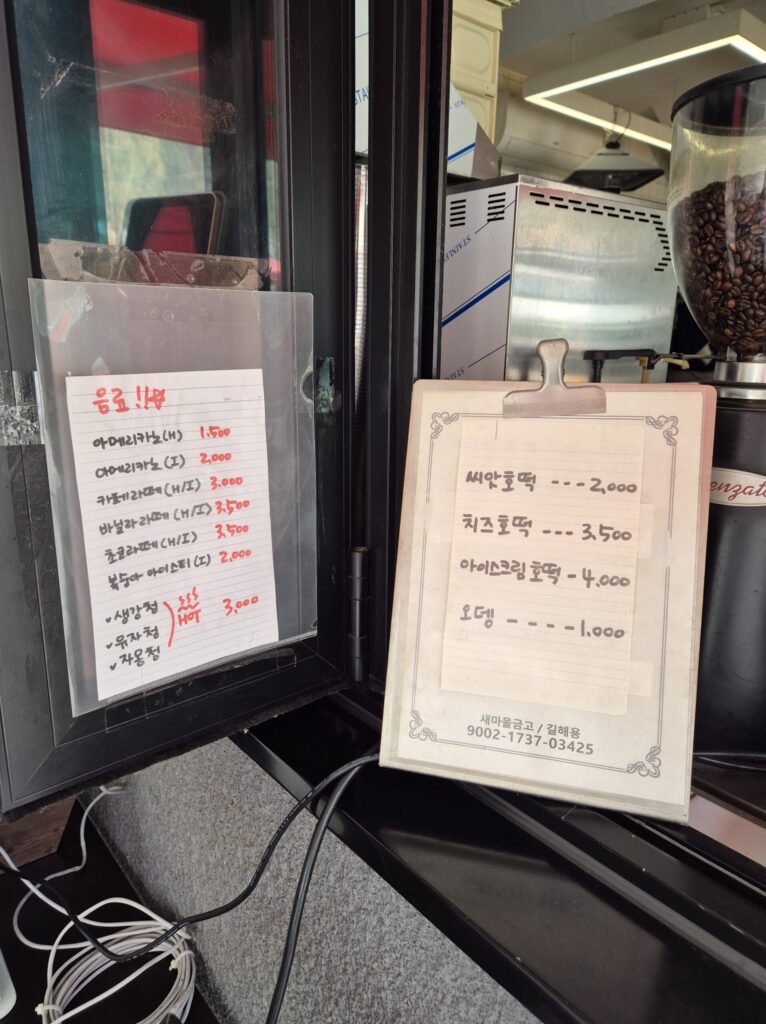 음료!!
아메리카노(H) 1,500
아메리카노(I) 2,000
카페라떼(H/I) 3,000
바닐라라떼(H/I) 3,500
초코라떼(H/I) 3,500
복숭아 아이스티(I) 2,000
생강청
유자청
자몽청
HOT 3,000
씨앗호떡 --- 2,000
치즈호떡 --- 3,500
아이스크림호떡 - 4,000
오뎅 ---- 1,000
새마을금고 / 길해용
9002-1737-03425
STAINLE